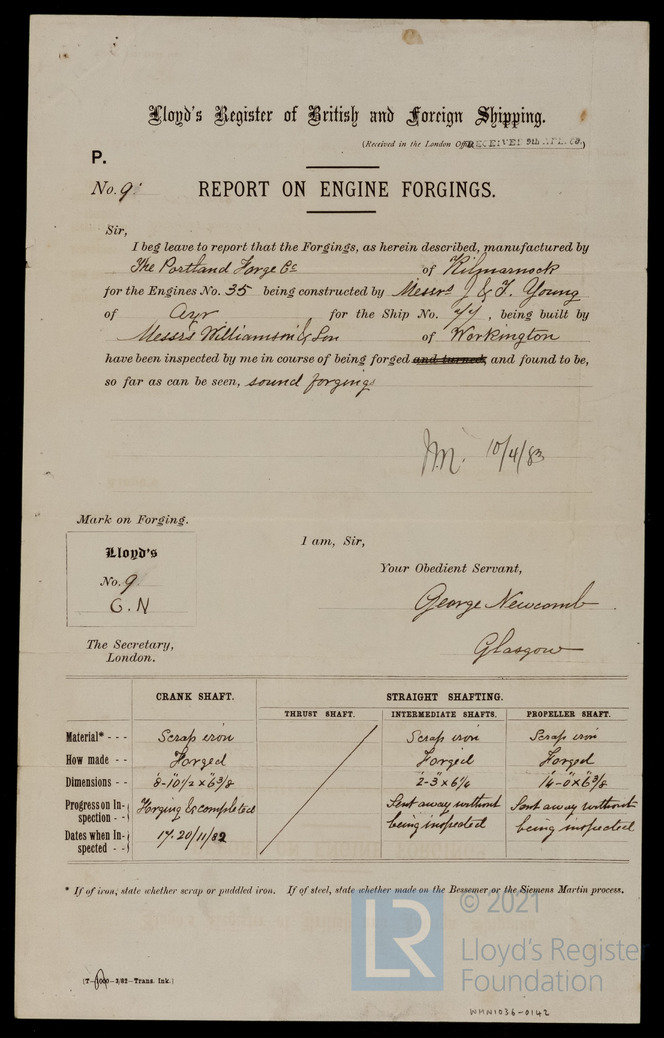 Lloyd's Register of British and Foreign Shipping.
(Received in the London Office RECEIVED 9th APL. 83.)
P.
No. 9
REPORT ON ENGINE FORGINGS.
Sir,
I beg leave to report that the Forgings, as herein described, manufactured by
The Portland Forge Co of Kilmarnock
for the Engines No. 35 being constructed by Messrs J & T. Young
of Ayr for the Ship No. 77, being built by
Messrs Williamson & Son of Workington
have been inspected by me in course of being forged and turned, and found to be,
so far as can be seen, sound forgings
10/4/83
Mark on Forging.
Lloyd's
No. 9
G. N
I am, Sir,
Your Obedient Servant,
George Newcomb
Glasgow
The Secretary,
London.
CRANK SHAFT. STRAIGHT SHAFTING.
THRUST SHAFT. INTERMEDIATE SHAFTS. PROPELLER SHAFT.
Material* - - - Scrap iron Scrap iron Scrap iron
How made - - Forged Forged Forged
Dimensions - - 8-10 1/2 x 6 3/8 2-3 x 6 1/4 14-0 x 6 3/8
Progress on In- Forging & completed Sent away without Sent away without
spection - - being inspected being inspected
Dates when In- 17.20/11/82
spected - -
* If of iron, state whether scrap or puddled iron. If of steel, state whether made on the Bessemer or the Siemens Martin process.
(T-1000-3/82-Trans. Ink.)
LR
© 2021
Lloyd's Register
Foundation
WMN1036-0142